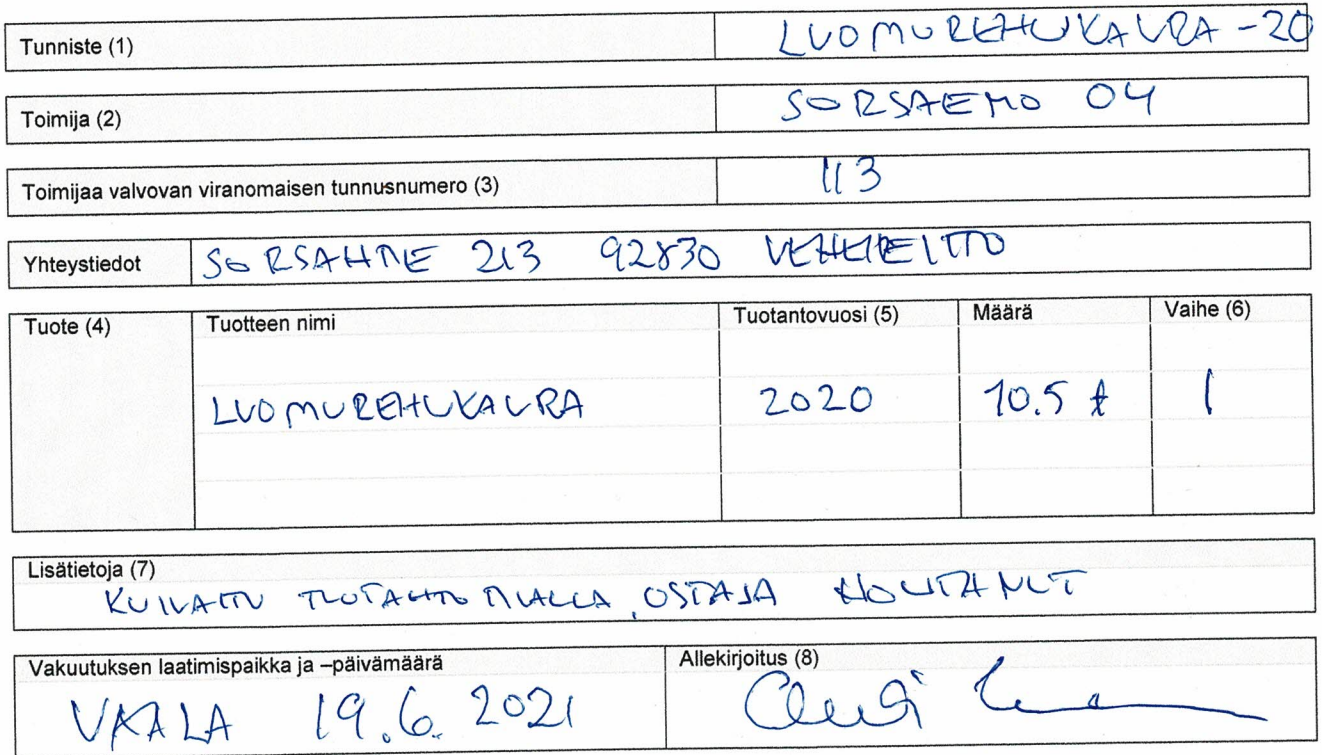 Tunniste (1) LUOMUREHUKAURA -20
Toimija (2) SORSAEMO OY
Toimijaa valvovan viranomaisen tunnusnumero (3) 113
Yhteystiedot SORSAHTIE 213 92830
Tuote (4) Tuotteen nimi Tuotantovuosi (5) Määrä Vaihe (6)
LUOMUREHUKAURA 2020 10.5 t 1
Lisätietoja (7)
KUIVATTU TUOTANTOTILALLA, OSTAJA NOUTANUT
Vakuutuksen laatimispaikka ja –päivämäärä Allekirjoitus (8)
VAALA 19.6. 2021